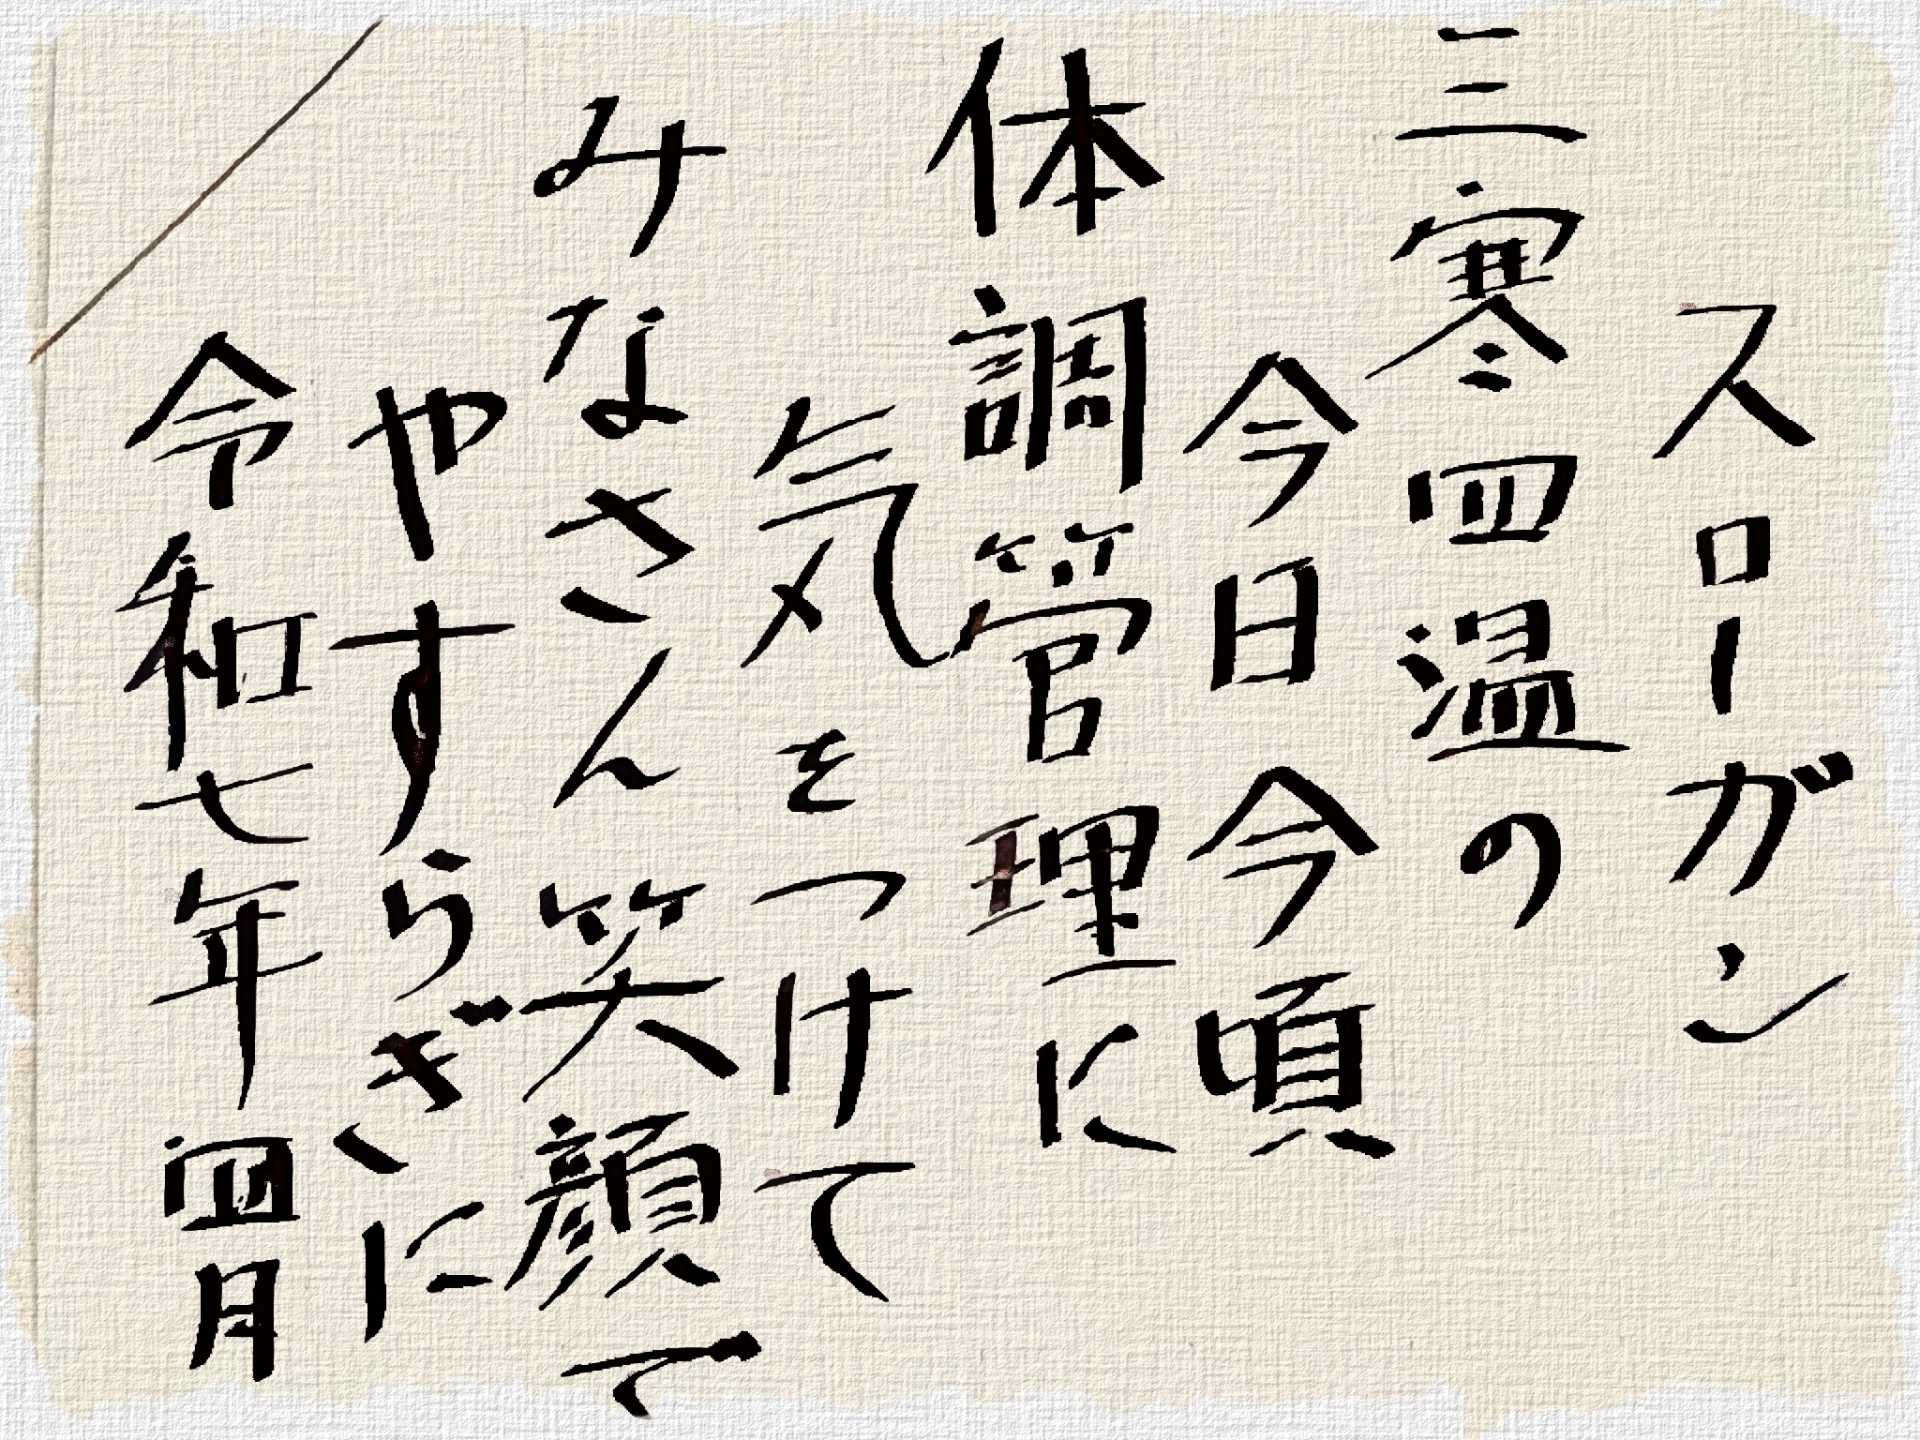 スローガン
三寒四温の
今日今頃
体調管理に
気をつけて
みなさん笑顔で
やすらぎに
令和七年四月